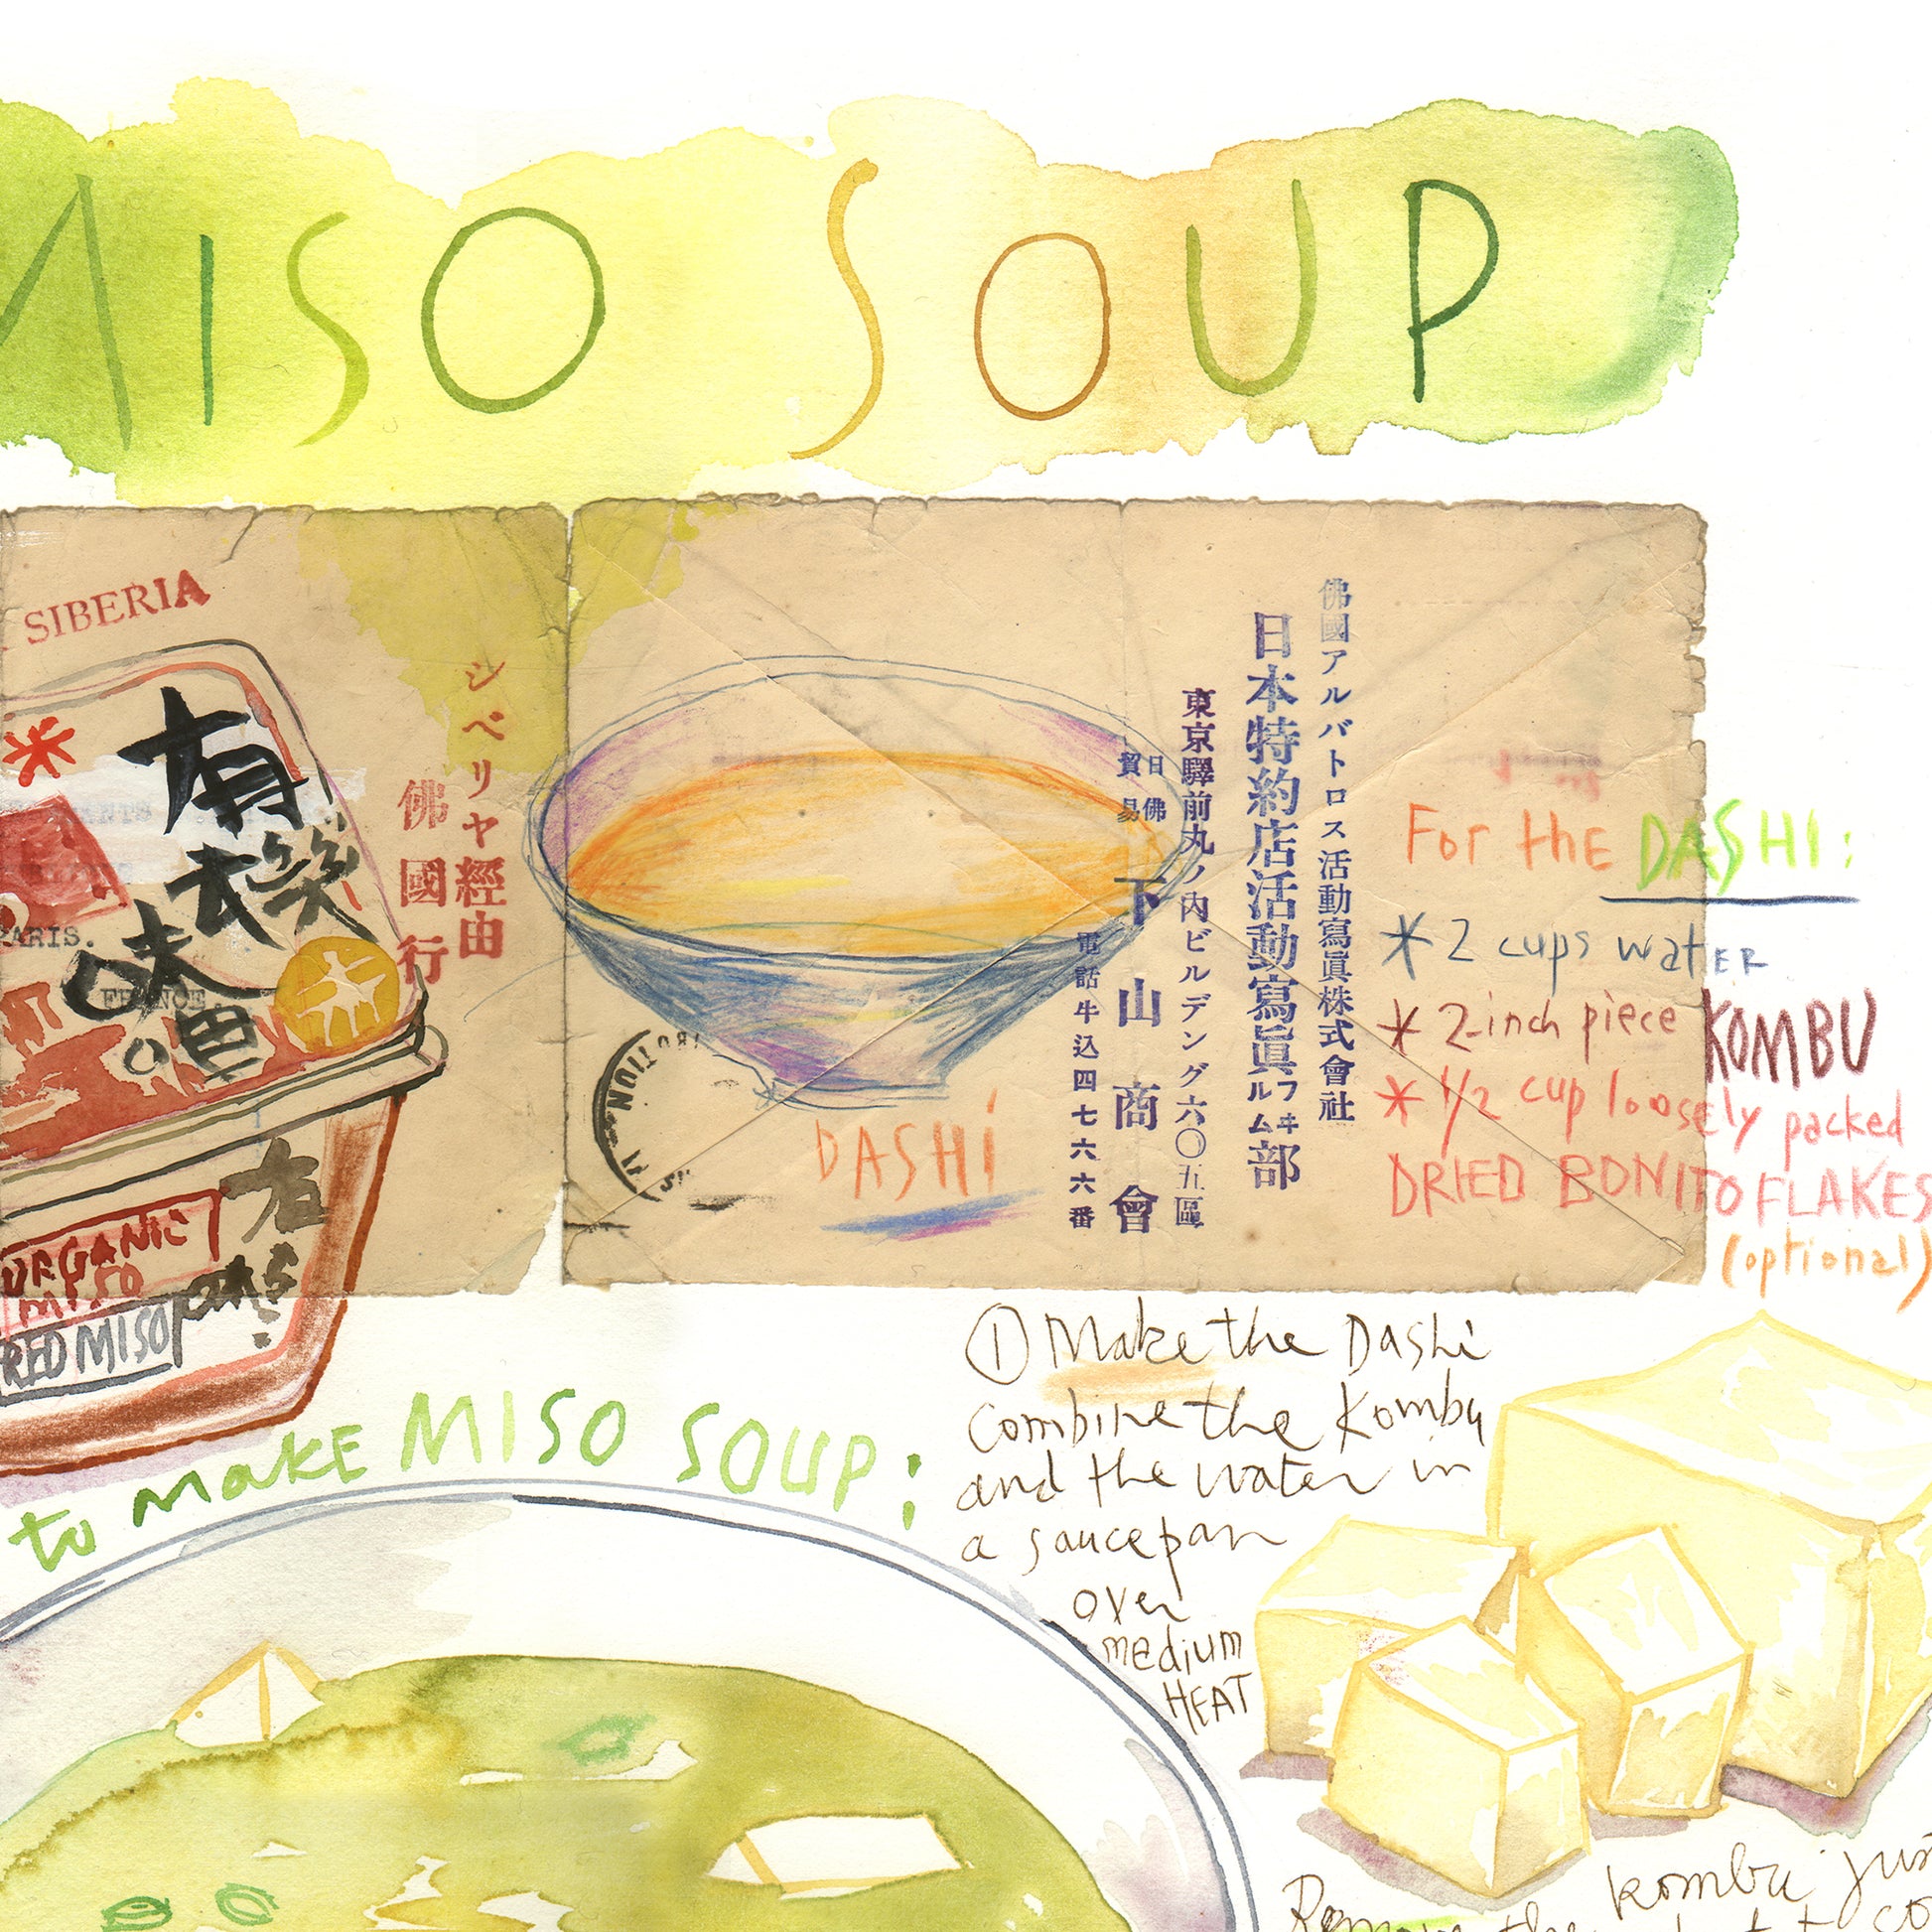 MISO SOUP
SIBERIA
シベリヤ經由
佛國行
佛國アルバトロス活動寫眞株式會社
日本特約店活動寫眞フヰルム部
東京驛前丸ノ内ビルデング六〇五區
日佛
貿易
下山商會
電話牛込四七六六番
PARIS.
FRANCE.
有機
味噌
ORGANIC
MISO
RED MISO
DASHI
For thE DASHI:
* 2 cups watER
* 2-inch piece KOMBU
* 1/2 cup loosely packed
DRIED BONITO FLAKES
(optional)
to makE MISO SOUP:
① Make the Dashi
Combine the Kombu
and the water in
a saucepan
over
medium
HEAT
Remove the kombu